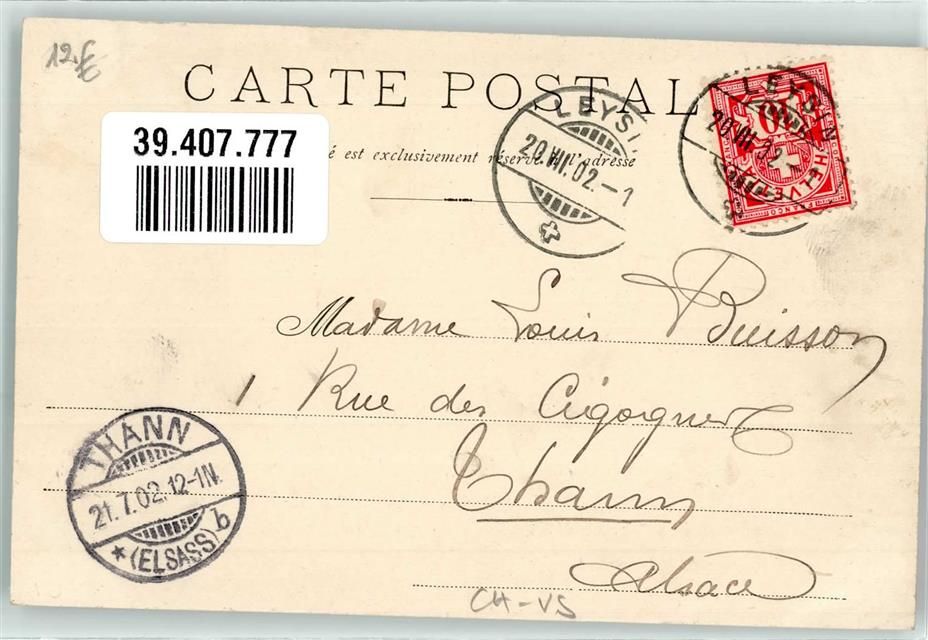 12.€
CARTE POSTALE
39.407.777
é est exclusivement réservé à l'adresse
LEYSI
20.VII.02.-1
LEYSIN
20.VII.02.
10
HELVETIA
FRANCO
Madame Louis Buisson
1 Rue des Cigognes
Thann
Alsace
THANN
21.7.02.12-1N.
* (ELSASS) b
CH-VS